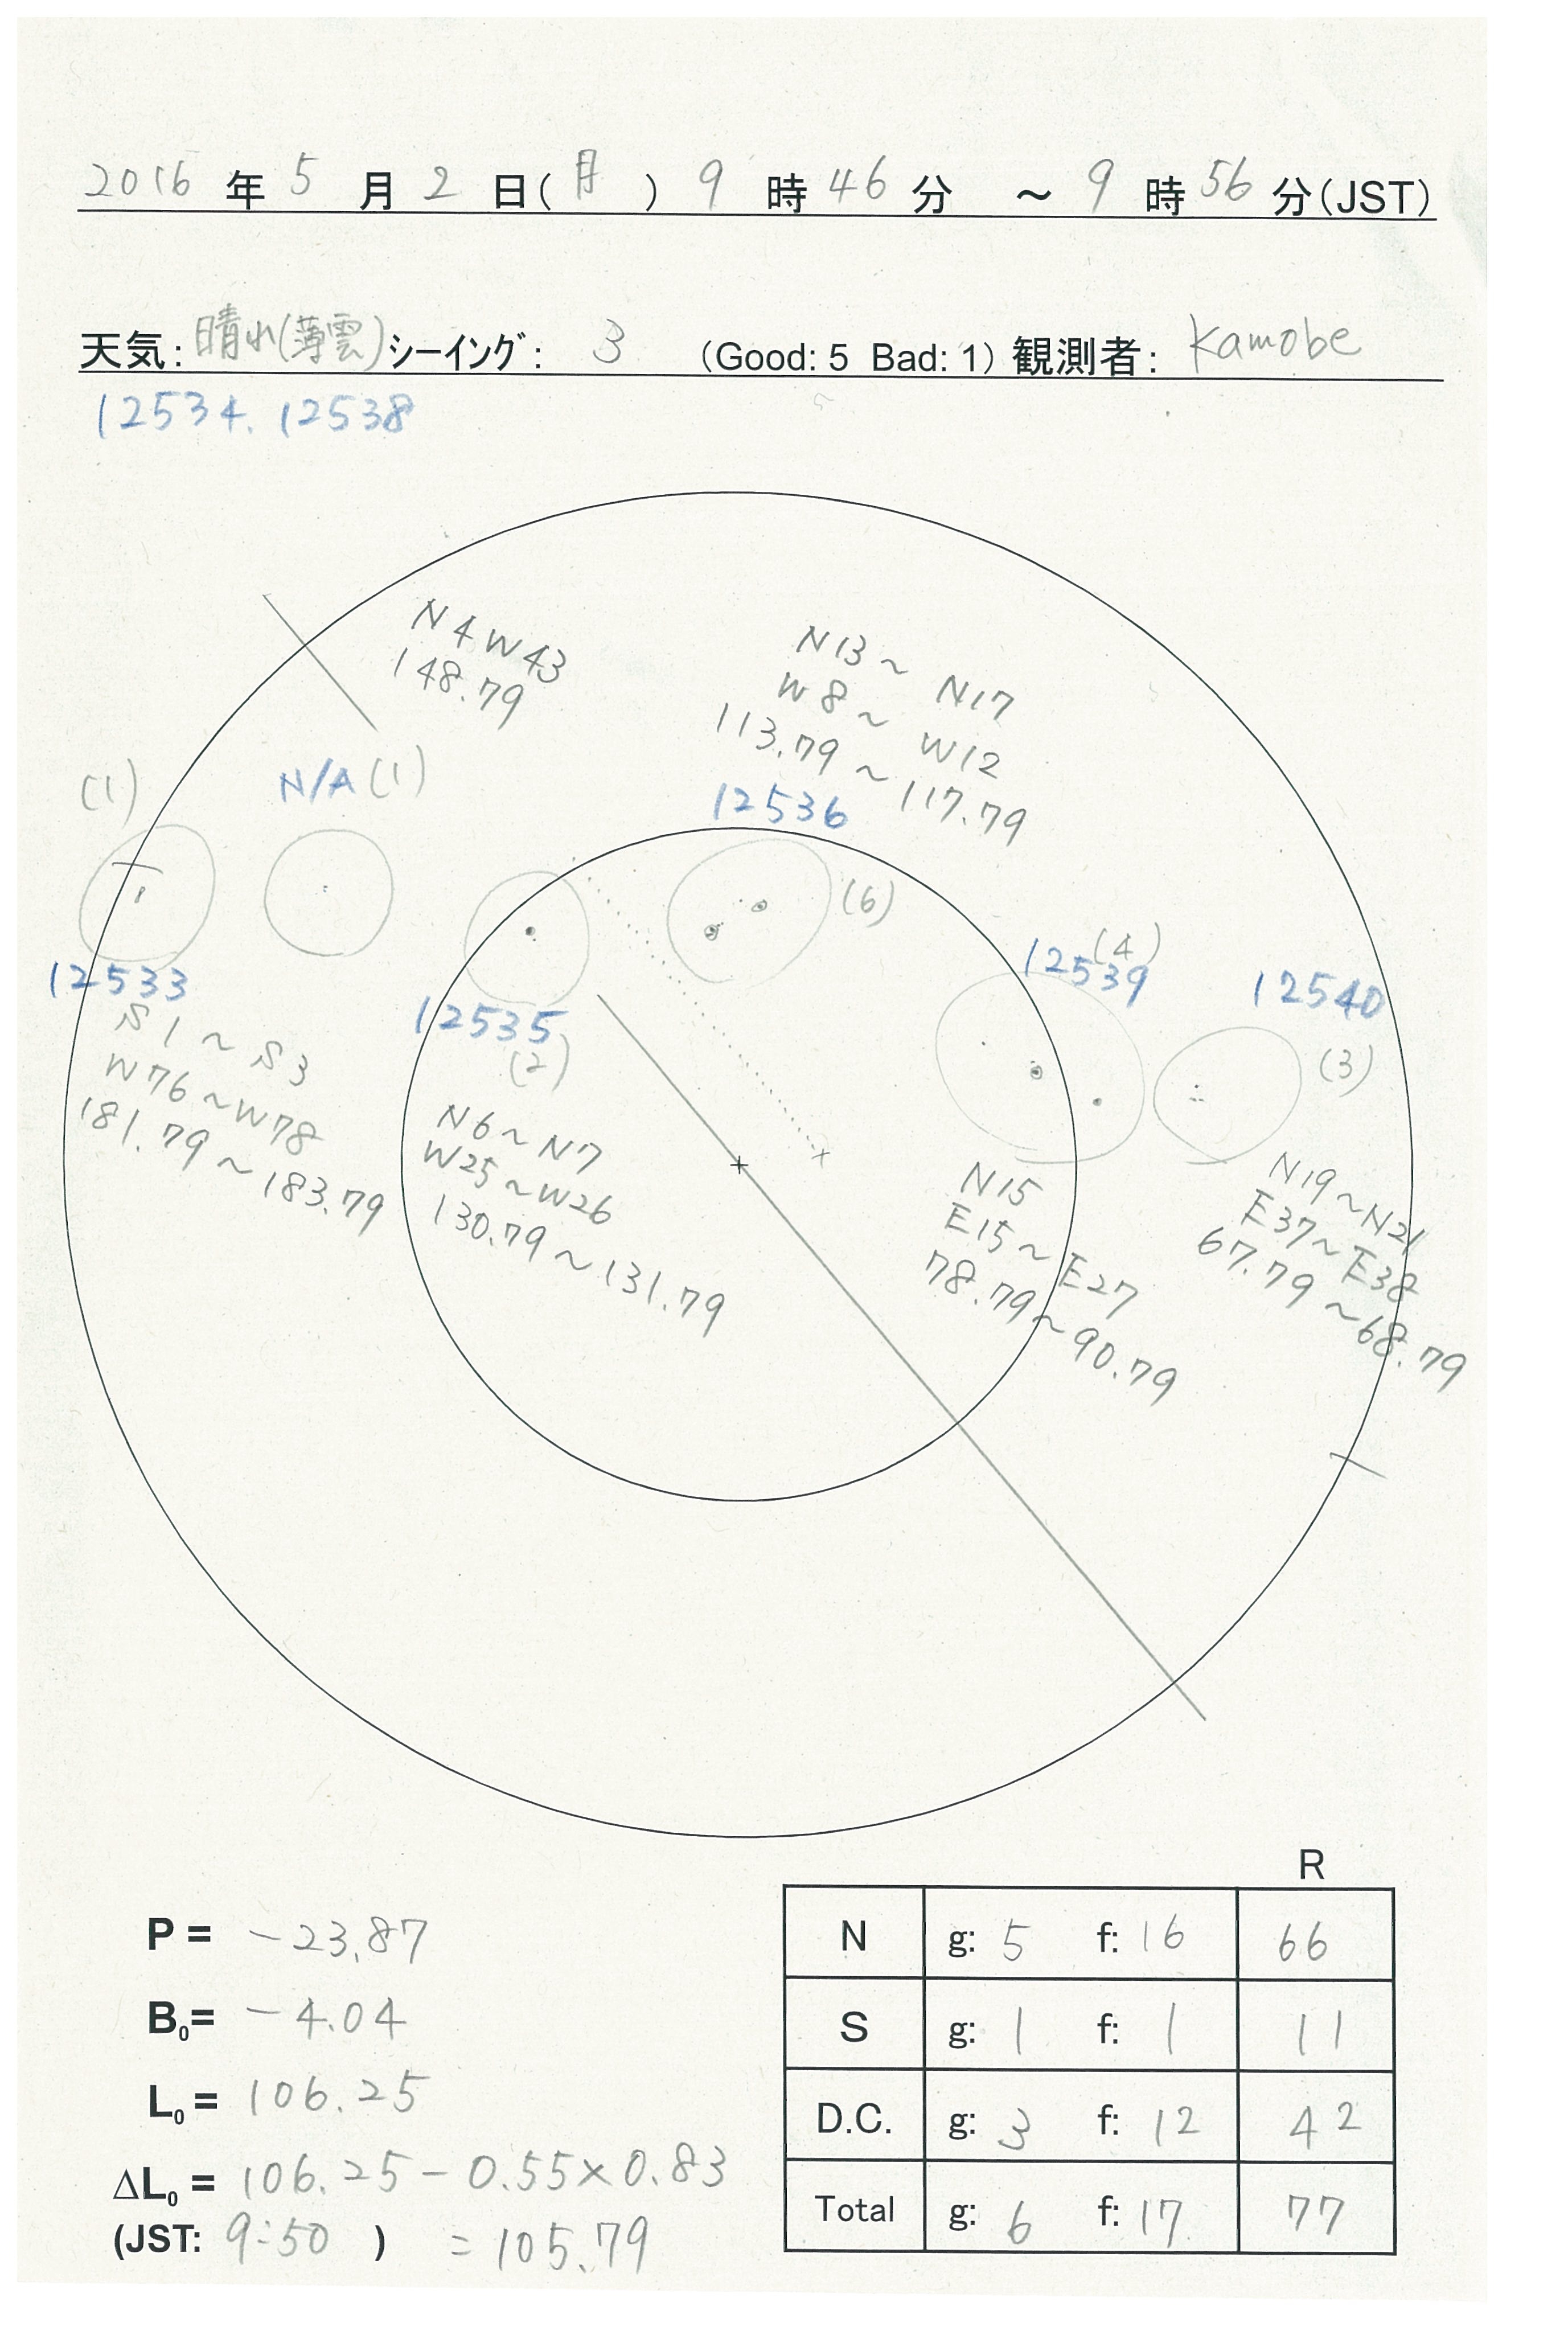 2016 年 5 月 2 日(月) 9 時 46 分 ～ 9 時 56 分(JST)
天気: 晴れ(薄雲) シーイング: 3 (Good: 5 Bad: 1) 観測者: Kamobe
12534. 12538
N4W43
148.79
N13～N17
W8～W12
113.79～117.79
(1)
N/A (1)
12536
(6)
(4)
12539
12533
12540
12535
(2)
(3)
S1～S3
W76～W78
181.79～183.79
N6～N7
W25～W26
130.79～131.79
N15
E15～E27
78.79～90.79
N19～N21
E37～E38
67.79～68.79
R
N g: 5 f: 16 66
S g: 1 f: 1 11
D.C. g: 3 f: 12 42
Total g: 6 f: 17 77
P = -23.87
B₀= -4.04
L₀= 106.25
ΔL₀ = 106.25 - 0.55×0.83
(JST: 9:50 ) = 105.79